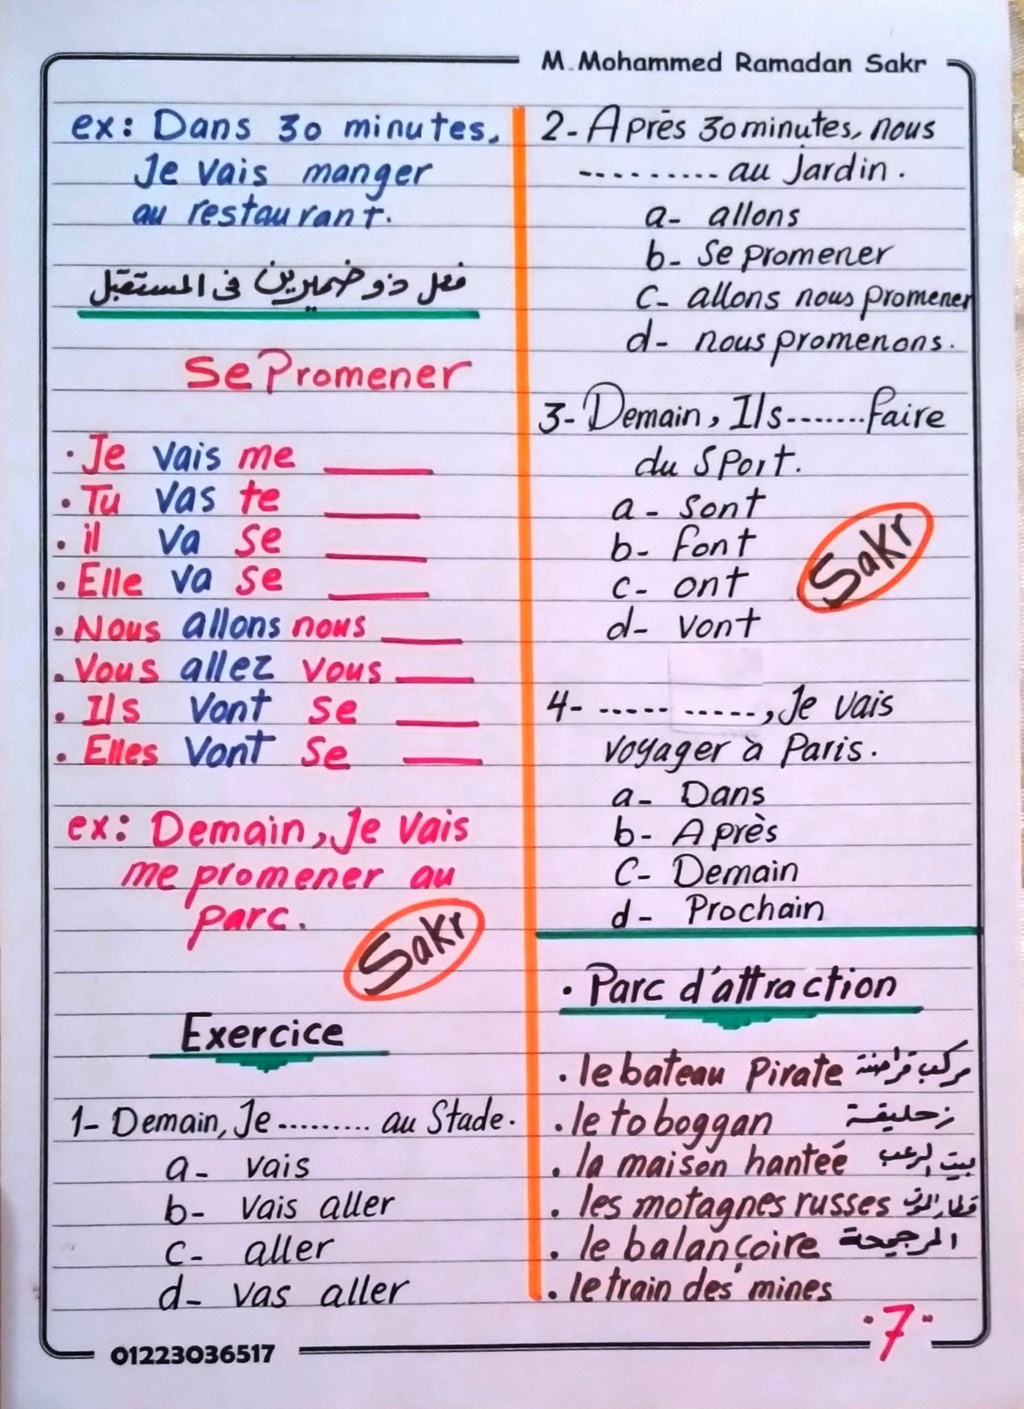 M. Mohammed Ramadan Sakr
ex: Dans 30 minutes,
Je vais manger
au restaurant.
فعل ذو ضميرين فى المستقبل
Se Promener
. Je vais me ____
. Tu vas te ____
. il va se ____
. Elle va se ____
. Nous allons nous ____
. Vous allez vous ____
. Ils vont se ____
. Elles vont se ____
ex: Demain, Je vais
me promener au
parc.
Sakr
Exercice
1- Demain, Je ......... au Stade.
a- vais
b- vais aller
c- aller
d- vas aller
2- Après 30 minutes, nous
--------- au Jardin.
a- allons
b- se promener
c- allons nous promener
d- nous promenons.
3- Demain, Ils ....... faire
du Sport.
a- sont
b- font
c- ont
d- vont
Sakr
4- ----- -----, Je vais
voyager à Paris.
a- Dans
b- Après
c- Demain
d- Prochain
. Parc d'attraction
. le bateau Pirate مركب قراصنة
. le toboggan زحليقة
. la maison hanteé بيت الرعب
. les motagnes russes قطار الموت
. le balançoire المرجيحة
. le train des mines
01223036517
7